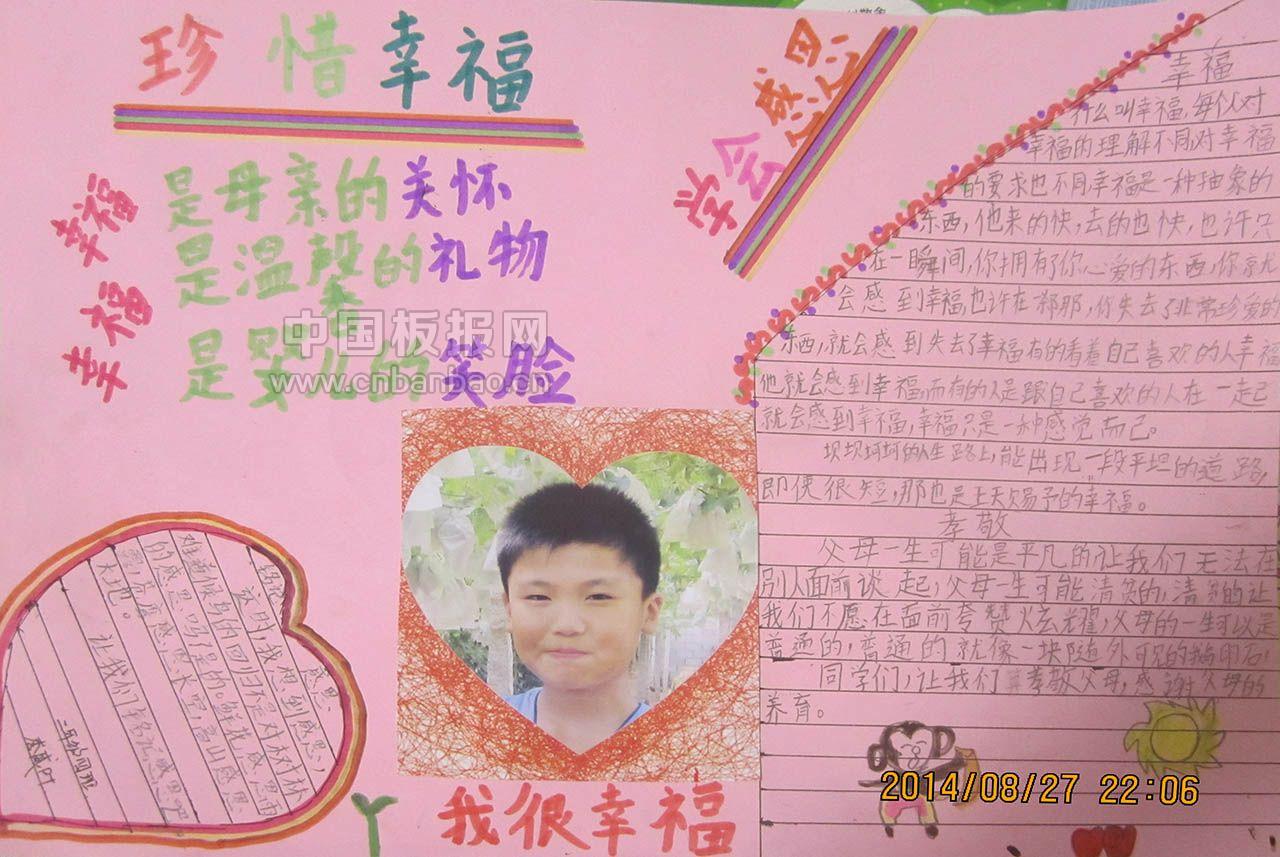 珍惜幸福
幸福是母亲的关怀
是温馨的礼物
幸福是婴儿的笑脸
学会感恩
中国板报网
www.cnbanbao.cn
我很幸福
幸福
什么叫幸福,每个人对
幸福的理解不同,对幸福
的要求也不同幸福是一种抽象的
东西,他来的快,去的也快,也许只
在一瞬间,你拥有你心爱的东西,你就
会感到幸福,也许在那,你失去了非常珍爱的
东西,就会感到失去了幸福有的看着自己喜欢的人幸福
他就会感到幸福,而有的人是跟自己喜欢的人在一起
就会感到幸福,幸福只是一种感觉而已。
坎坎坷坷的人生路上,能出现一段平坦的道路,
即使很短,那也是上天赐予的幸福。
孝敬
父母一生可能是平凡的让我们无法在
别人面前谈起,父母一生可能清贫的,清贫的让
我们不愿在面前夸赞炫耀,父母的一生可以是
普通的,普通的就像一块随外可见的鹅卵石,
同学们,让我们孝敬父母,感谢父母的
养育。
感恩
这时,我想到感恩,
的感恩吗?是的。鲜花感恩雨
大地。 让我们
2014/08/27 22:06